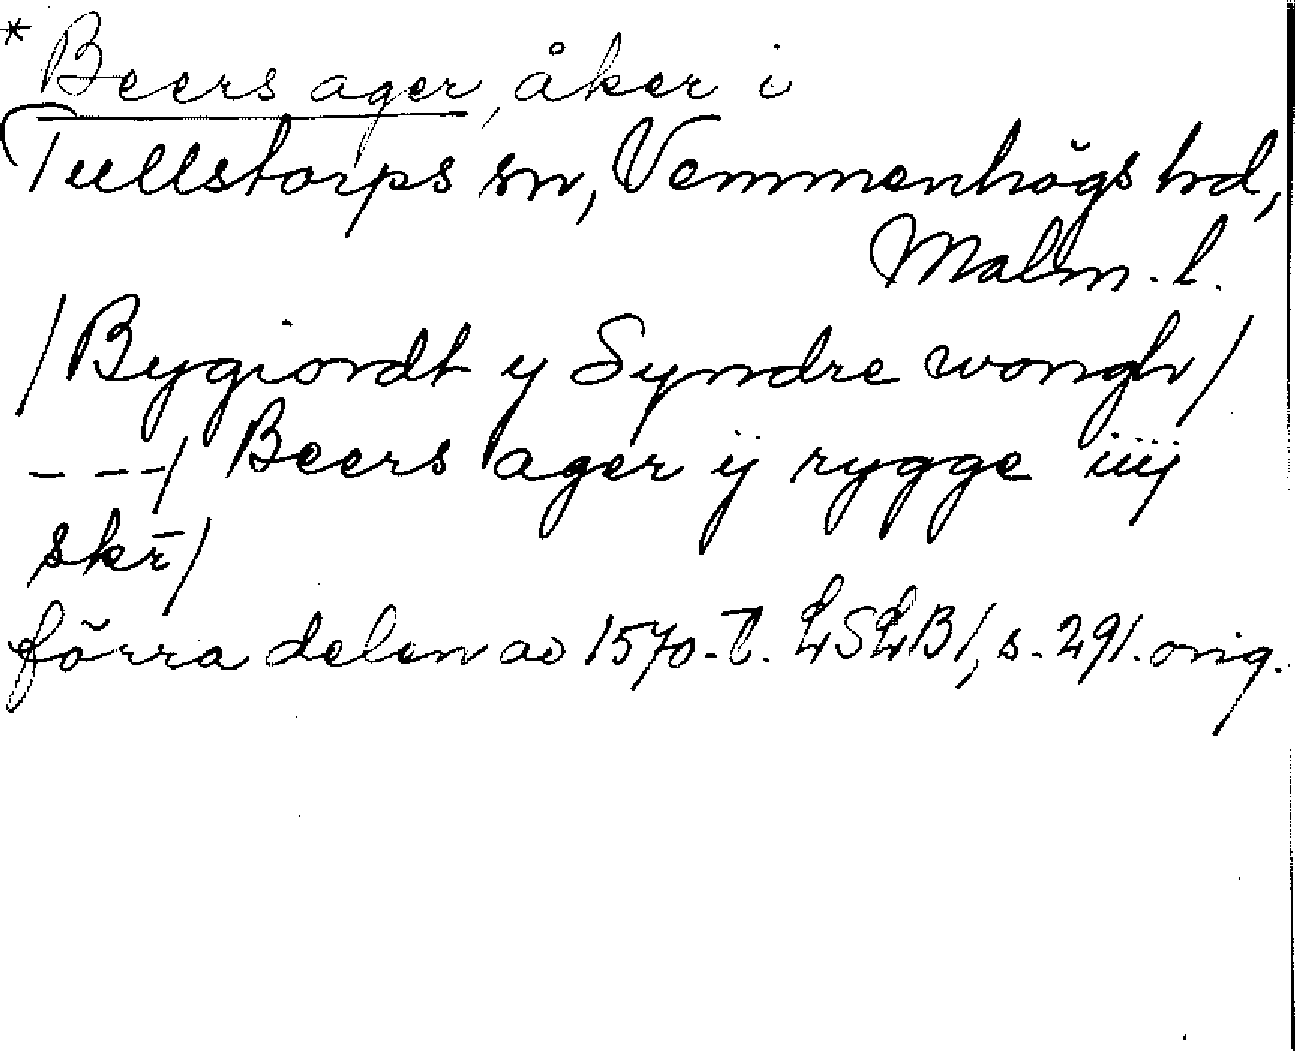 * Beers ager, åker i
Tullstorps sn, Vemmenhögs hd,
Malm. l.
/Bygiordt y Syndre wongh/
---/ Beers ager ij rygge iiij
skr̄/
förra delen av 1570-t. LSLB1, s. 291. orig.